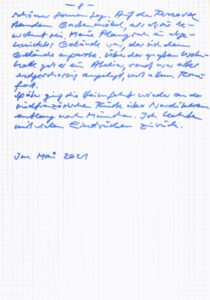 - 8 -
schöner Sonnentag. Auf der Terrasse
standen Gartenmöbel, als ob sie be-
wohnt sei. Haus Planung in abge-
Gelände vor, das sich dem
Gelände anpasste. Über der großen Wohn-
gab es ein Atelier, sonst war alles
erdgeschossig angelegt, mit allem Kom-
fort.
Später ging die Heimfahrt wieder an der
südfranzösische Küste über Norditalien
entlang nach München. Ich kehrte
mit vielen Eindrücken zurück.
Im Mai 2021